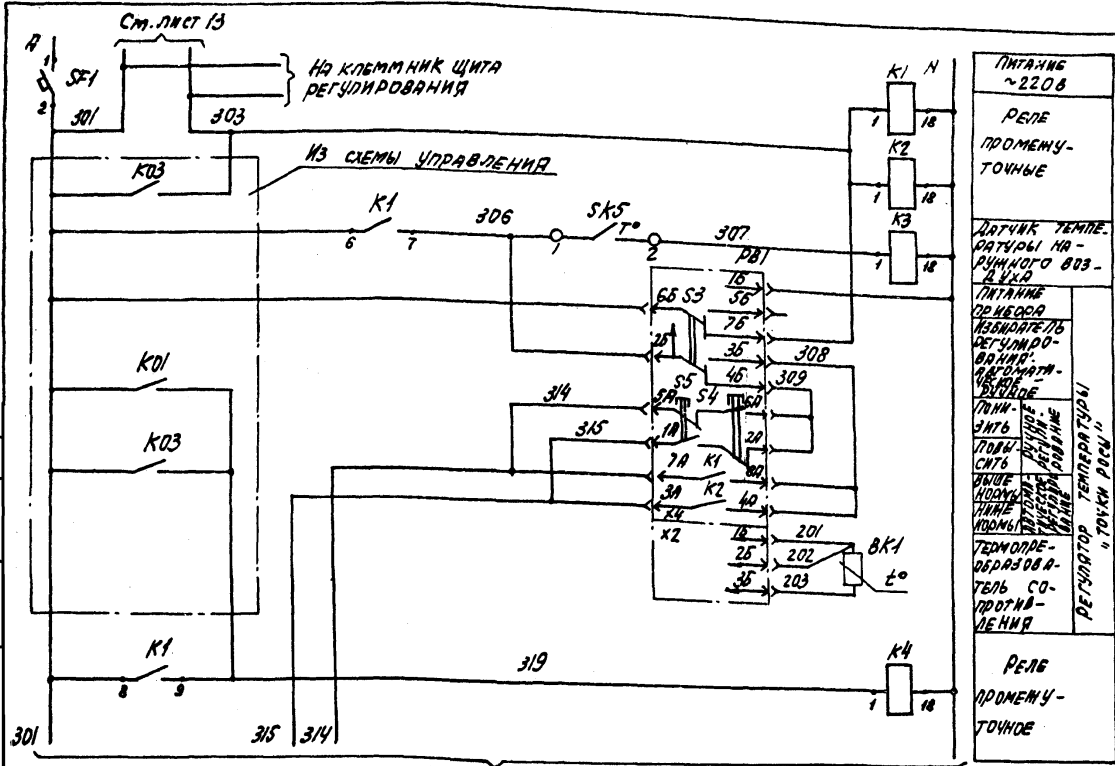 См. лист 13
А
1
SF1
2
301
303
На клеммник щита
регулирования
К1
N
1
18
К2
1
18
К3
1
18
Из схемы управления
К03
К1
6
7
306
SK5
T°
1
2
307
РВ1
1Б
6Б
S3
5Б
7Б
2Б
3Б
308
4Б
309
К01
314
S5
S4
5А
6А
К03
315
1А
2А
7А
К1
8А
3А
К2
4А
х4
х2
1Б
201
2Б
202
ВК1
3Б
203
t°
К1
8
9
319
К4
1
18
301
315
314
Питание
~220В
Реле
промежу-
точные
Датчик темпе-
ратуры на-
ружного воз-
духа
Питание
прибора
Избиратель
регулиро-
вания:
автомати-
ческое –
ручное
Пони-
зить
Повы-
сить
Ручное
регули-
рование
Выше
нормы
Ниже
нормы
Автома-
тическое
регулиро-
вание
Термопре-
образова-
тель со-
против-
ления
Регулятор температуры
"точки росы"
Реле
промежу-
точное